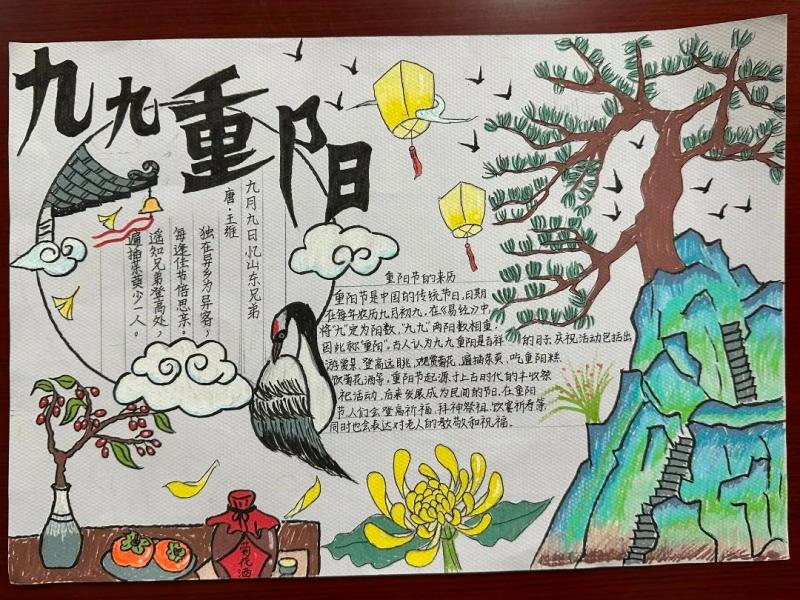 九九重阳
九月九日忆山东兄弟
唐·王维
独在异乡为异客，
每逢佳节倍思亲。
遥知兄弟登高处，
遍插茱萸少一人。
重阳节的来历
重阳节是中国的传统节日，日期
在每年农历九月初九，在《易经》中
将“九”定为阳数，“九九”两阳数相重，
因此称“重阳”。古人认为九九重阳是吉祥的日子，庆祝活动包括出
游赏景、登高远眺、观赏菊花、遍插茱萸、吃重阳糕、
饮菊花酒等，重阳节起源于上古时代的丰收祭
祀活动，后来发展成为民间的节日，在重阳
节，人们会登高祈福、拜神祭祖、饮宴祈寿等，
同时也会表达对老人的敬敬和祝福。
菊花酒